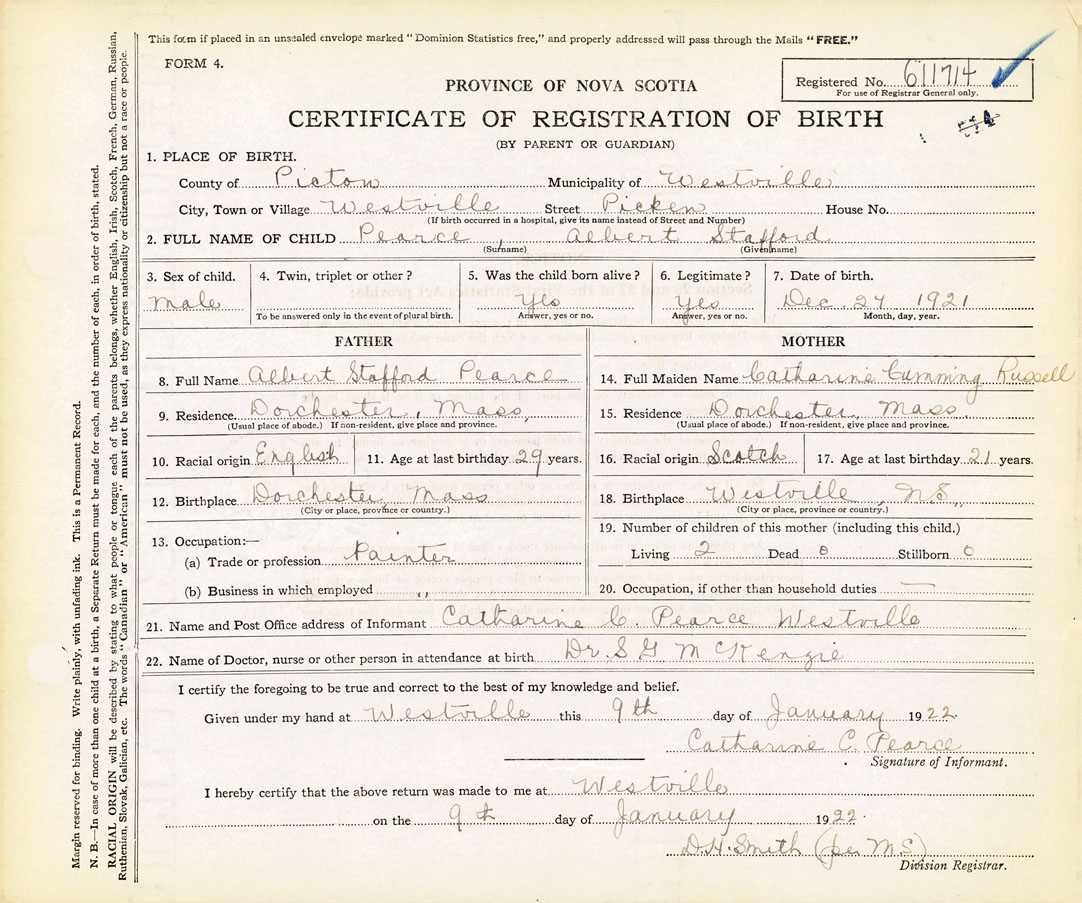 This form if placed in an unsealed envelope marked "Dominion Statistics free," and properly addressed will pass through the Mails "FREE."
FORM 4.
Registered No. 611714
For use of Registrar General only.
PROVINCE OF NOVA SCOTIA
CERTIFICATE OF REGISTRATION OF BIRTH
(BY PARENT OR GUARDIAN)
1. PLACE OF BIRTH.
County of Picton Municipality of Westville
City, Town or Village Westville Street Picken House No.
(If birth occurred in a hospital, give its name instead of Street and Number)
2. FULL NAME OF CHILD Pearce, Albert Stafford
(Surname) (Given name)
3. Sex of child. 4. Twin, triplet or other? 5. Was the child born alive? 6. Legitimate? 7. Date of birth.
Male Yes Yes Dec. 27 1921
To be answered only in the event of plural birth. Answer, yes or no. Answer, yes or no. Month, day, year.
FATHER
8. Full Name Albert Stafford Pearce
9. Residence. Dorchester, Mass,
(Usual place of abode.) If non-resident, give place and province.
10. Racial origin English 11. Age at last birthday 29 years.
12. Birthplace Dorchester Mass
(City or place, province or country.)
13. Occupation:—
(a) Trade or profession Painter
(b) Business in which employed ,,
MOTHER
14. Full Maiden Name Catharine Cumming Russell
15. Residence Dorchester, Mass.
(Usual place of abode.) If non-resident, give place and province.
16. Racial origin Scotch 17. Age at last birthday 21 years.
18. Birthplace Westville, N.S.,
(City or place, province or country.)
19. Number of children of this mother (including this child.)
Living 2 Dead 0 Stillborn 0
20. Occupation, if other than household duties —
21. Name and Post Office address of Informant Catharine C. Pearce Westville
22. Name of Doctor, nurse or other person in attendance at birth Dr. S G McKenzie
I certify the foregoing to be true and correct to the best of my knowledge and belief.
Given under my hand at Westville this 9th day of January 1922.
Catharine C. Pearce
Signature of Informant.
I hereby certify that the above return was made to me at Westville
on the 9th day of January 1922.
D.H. Smith (per M S)
Division Registrar.
Margin reserved for binding. Write plainly, with unfading ink. This is a Permanent Record.
N. B.—In case of more than one child at a birth, a Separate Return must be made for each, and the number of each, in order of birth, stated.
RACIAL ORIGIN will be described by stating to what people or tongue each of the parents belongs, whether English, Irish, Scotch, French, German, Russian,
Ruthenian, Slovak, Galician, etc. The words "Canadian" or "American" must not be used, as they express nationality or citizenship but not a race or people.